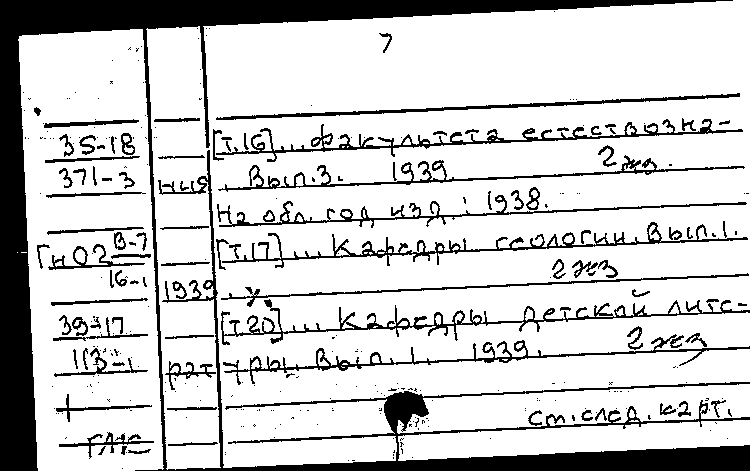 7
35-18 [т.16]... факультета естествозна-
371-3 ния. Вып.3. 1939. 2 жз.
На обл. год изд.: 1938.
ГнО2 В-7/16-1 [т.17]... Кафедры геологии. Вып.1.
1939. 2 жз
39-17 [т.20]... Кафедры детской лите-
113-1 ратуры. Вып. 1. 1939. 2 жз
+ см. след. карт.